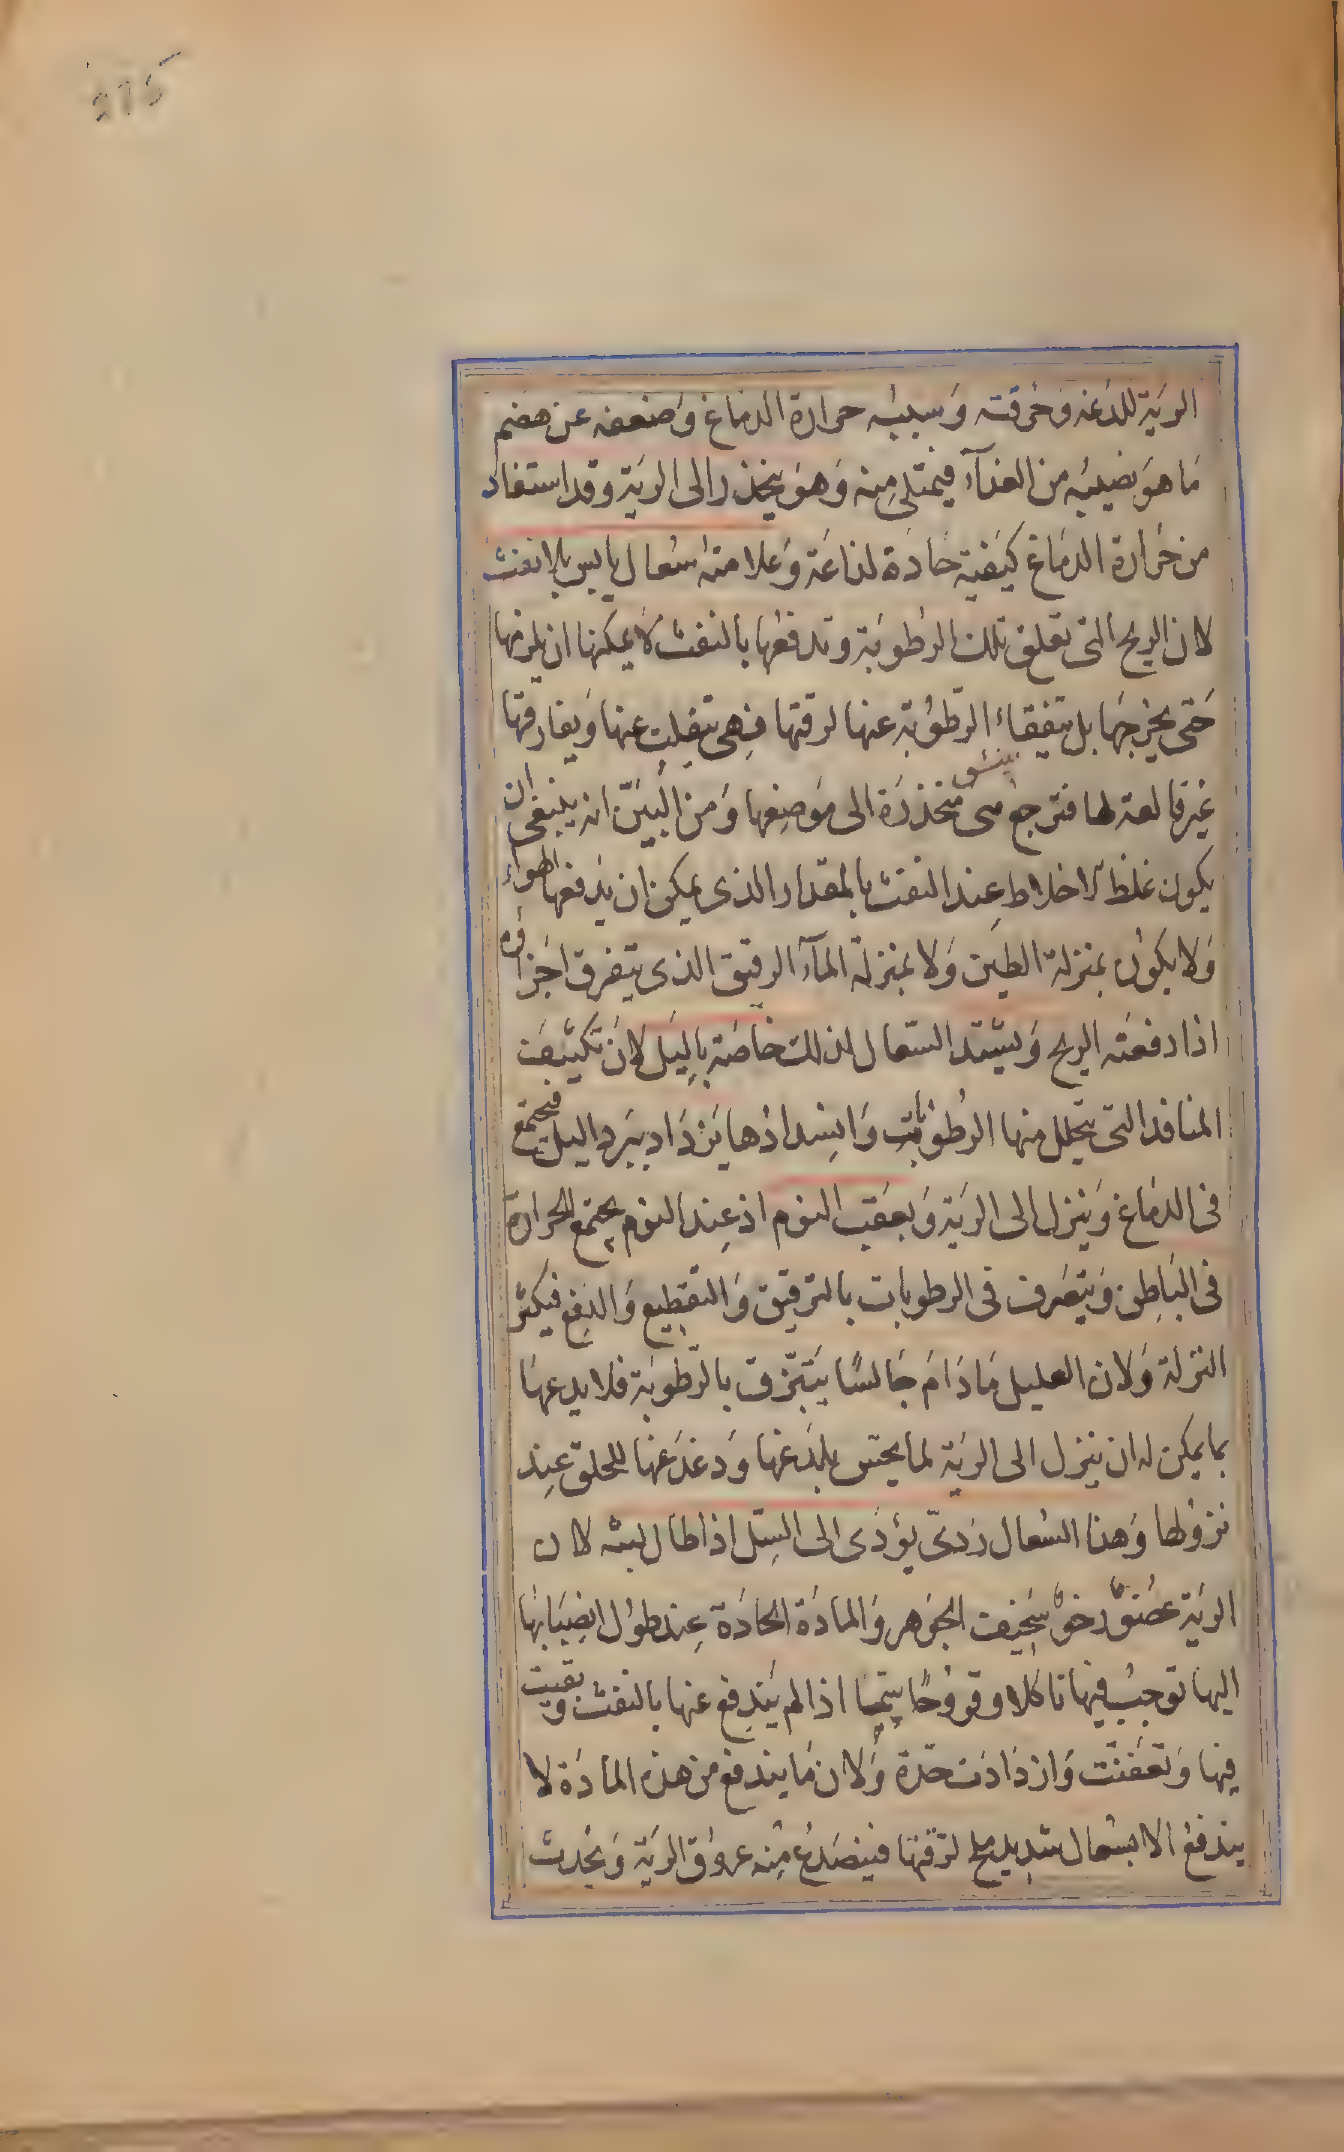 275
الرية للذعه وحرقته وسببه حرارة الدماغ وضعفه عن هضم
ما هو نصيبه من الغذآء فيمتلى منه وهو ينحذر الى الرية وقد استفاد
من حرارة الدماغ كيفية حادة لذاعة وعلامته سعال يابس بلا نفث
لان الريح التى تعلق تلك الرطوبة وتدفعها بالنفث لا يمكنها ان يلزمها
حتى يخرجها بل يتفقاء الرطوبة عنها لرقتها فهى تنفلت عنها ويفارقها
غير قالعة لها فترجع هى منحذرة الى موضعها ومن البين انه ينبغى ان
يكون غلظ الاخلاط عند النفث بالمقدار الذى يمكن ان يدفعها الهواء
ولا يكون بمنزلة الطين ولا بمنزلة المآء الرقيق الذى يتفرق اجزاؤه
اذا دفعته الريح ويشتد السعال لذلك خاصة بالليل لان تكثيف
المنافذ التى يتحلل منها الرطوبات وانسدادها يزداد ببرد الليل فيجتمع
فى الدماغ وينزل الى الرية وبعقب النوم اذ عند النوم يجتمع الحرارة
فى الباطن ويتصرف فى الرطوبات بالترقيق والتقطيع والدفع فيكثر
النزلة ولان العليل ما دام جالسا يتبزق بالرطوبة فلا يدعها
بما يمكن له ان ينزل الى الرية لما يحس بلذعها ودغدغها للحلق عند
نزولها وهذا السعال ردى يؤدى الى السل اذا طال لبثه لان
الرية عضو رخو سخيف الجوهر والمادة الحادة عند طول انصبابها
اليها توجب فيها تاكلا وقروحا سيما اذا لم يندفع عنها بالنفث وبقيت
فيها وتعفنت وازدادت حدة ولان ما يندفع من هذه المادة لا
يندفع الا بسعال شديد لرقتها فينصدع منه عروق الرية ويحدث